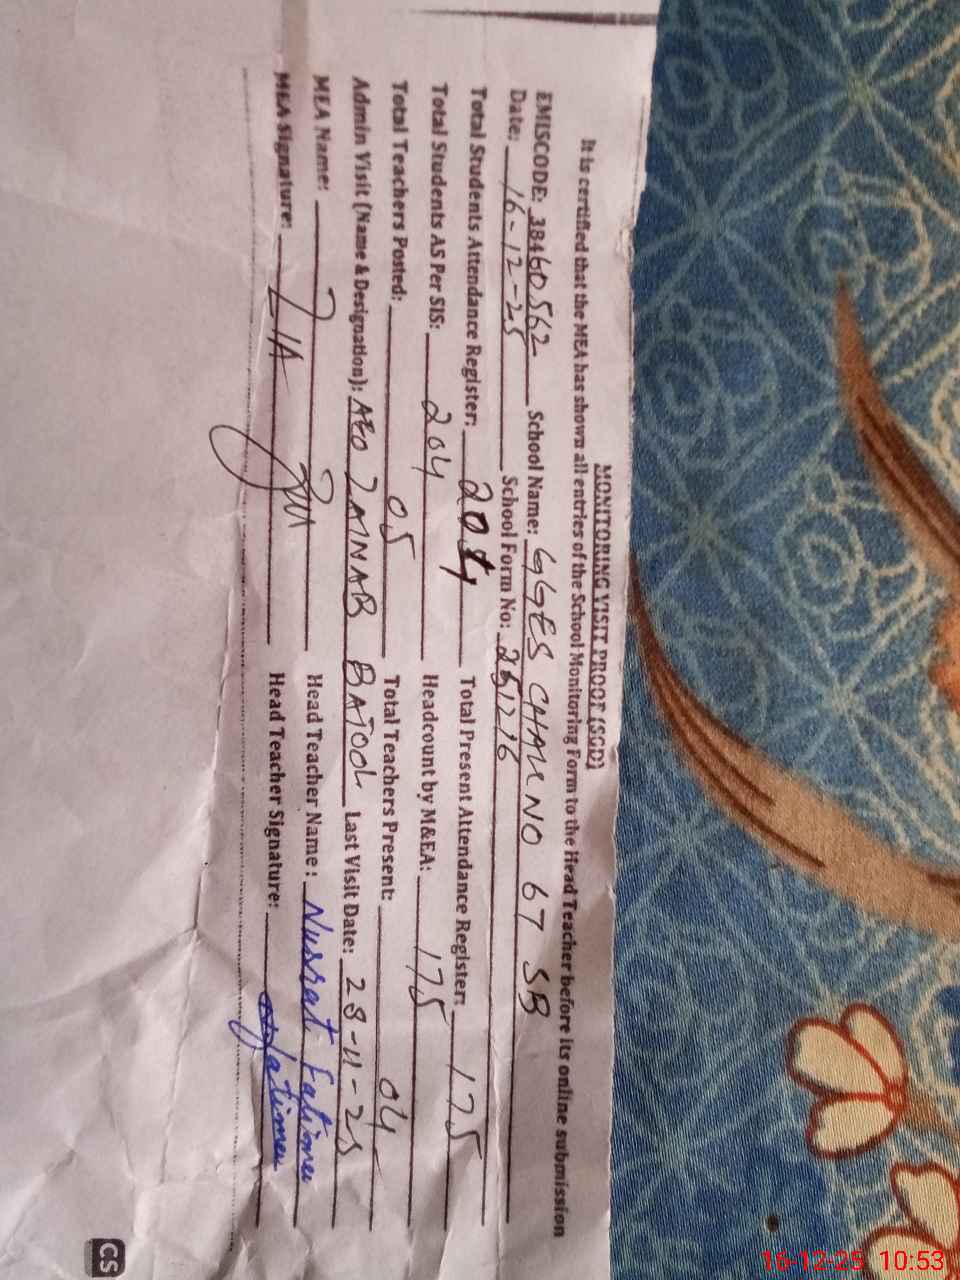 MONITORING VISIT PROOF (SGD)
It is certified that the MEA has shown all entries of the School Monitoring Form to the Head Teacher before its online submission
EMISCODE: 38460562 School Name: GGES CHAK NO 67 SB
Date: 16-12-25 School Form No: 251216
Total Students Attendance Register: 204 Total Present Attendance Register: 175
Total Students AS Per SIS: 204 Headcount by M&EA: 175
Total Teachers Posted: 05 Total Teachers Present: 04
Admin Visit (Name & Designation): AEO ZAINAB BATOOL Last Visit Date: 28-11-25
MEA Name: Head Teacher Name: Nusrat Fatima
MEA Signature: ZIA Head Teacher Signature: Fatima
CS
16-12-25 10:53